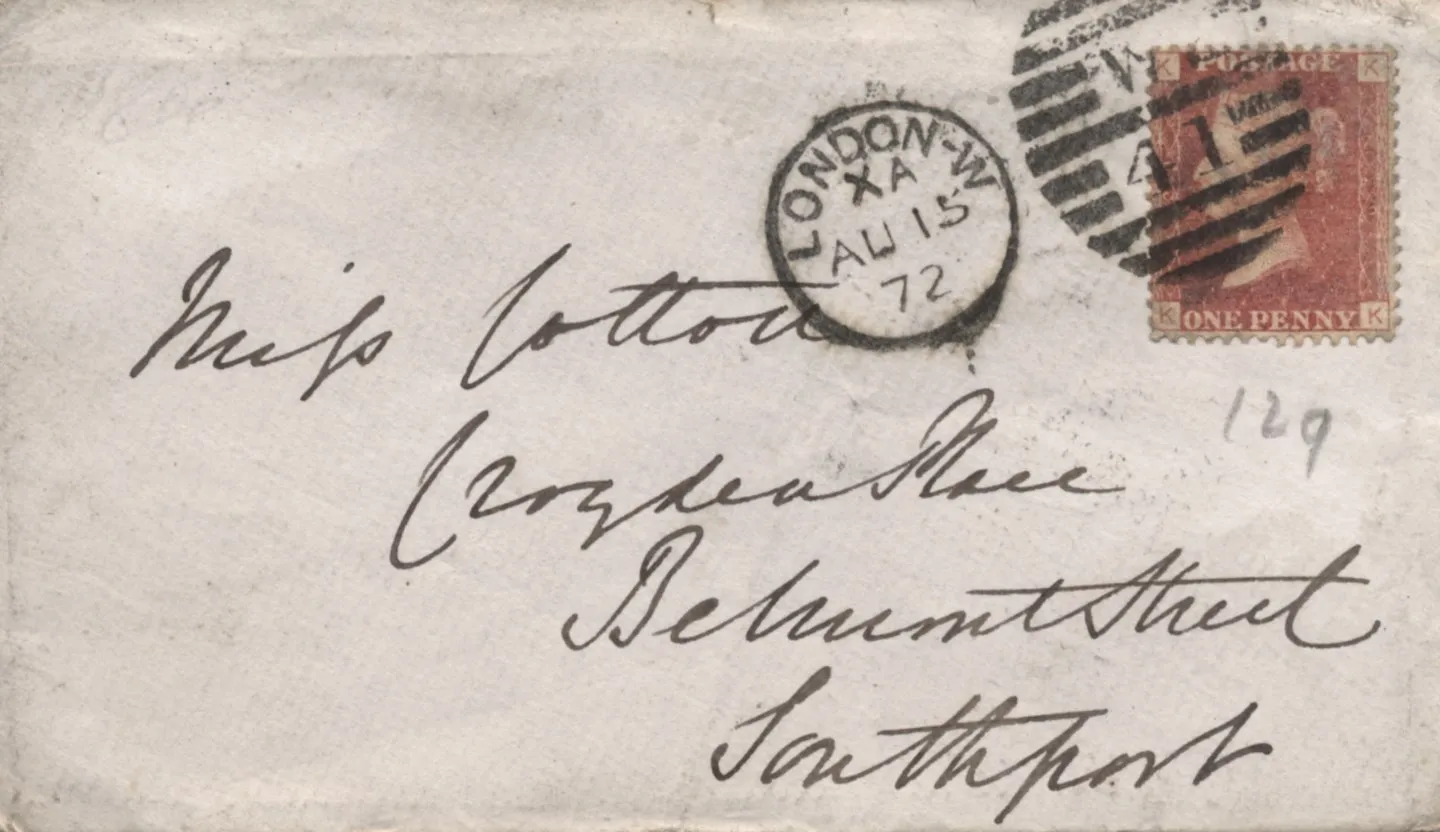 LONDON-W
XA
AU 15
72
W
41
K POSTAGE K
K ONE PENNY K
129
Miss Cotton
Croyden Place
Belmont Street
Southport